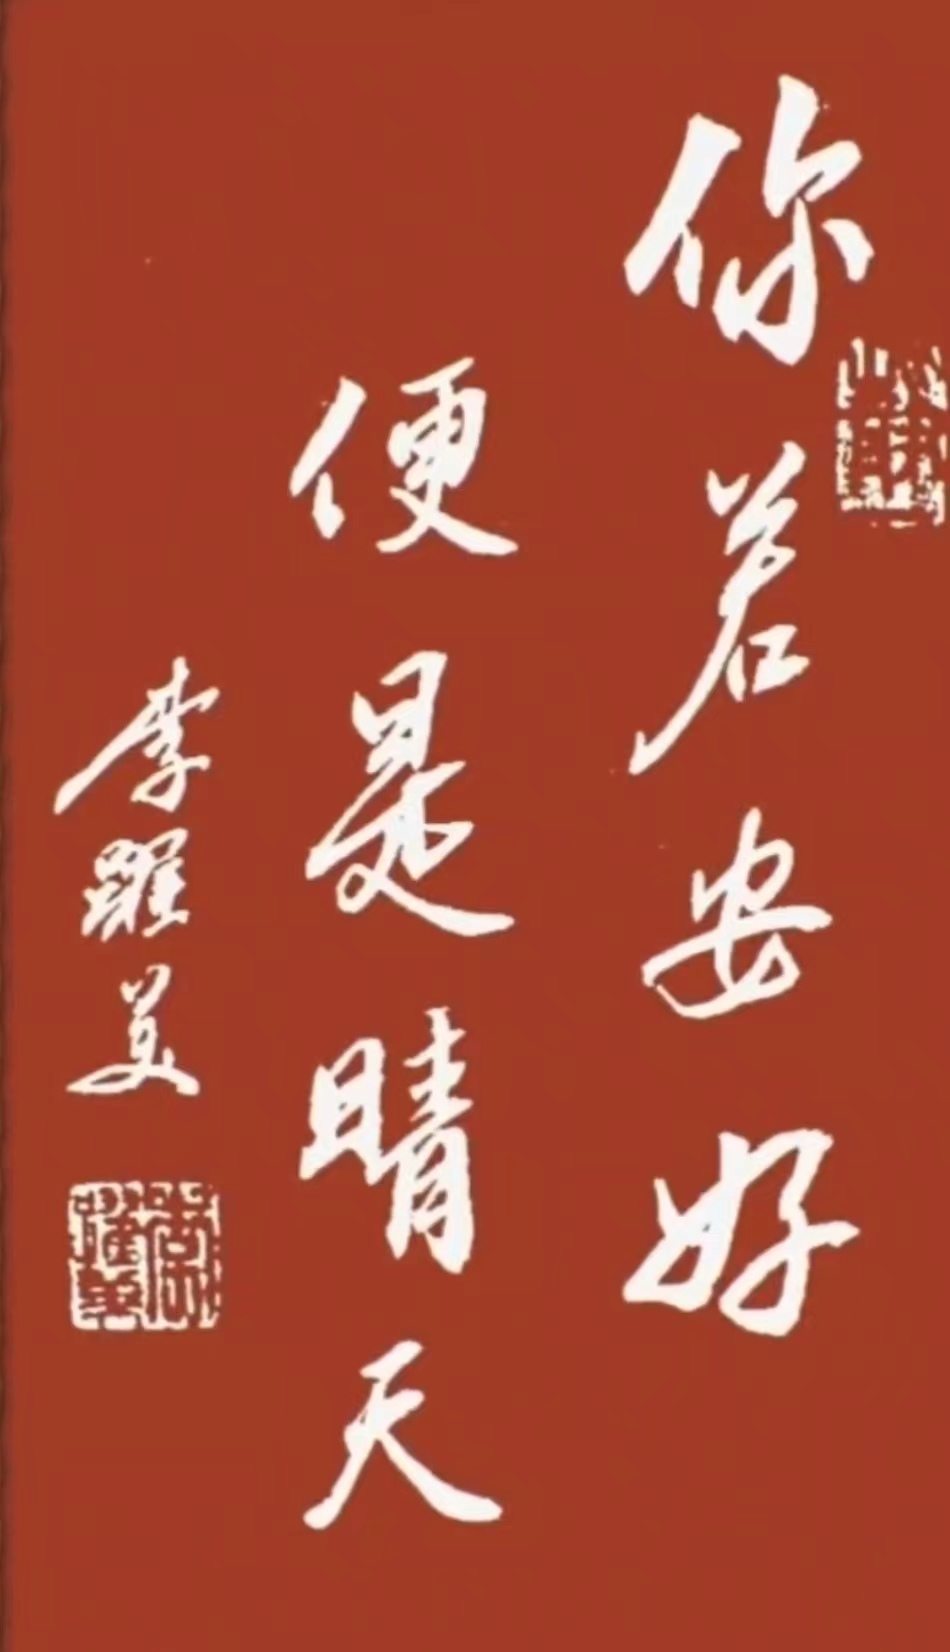 你若安好
便是晴天
李